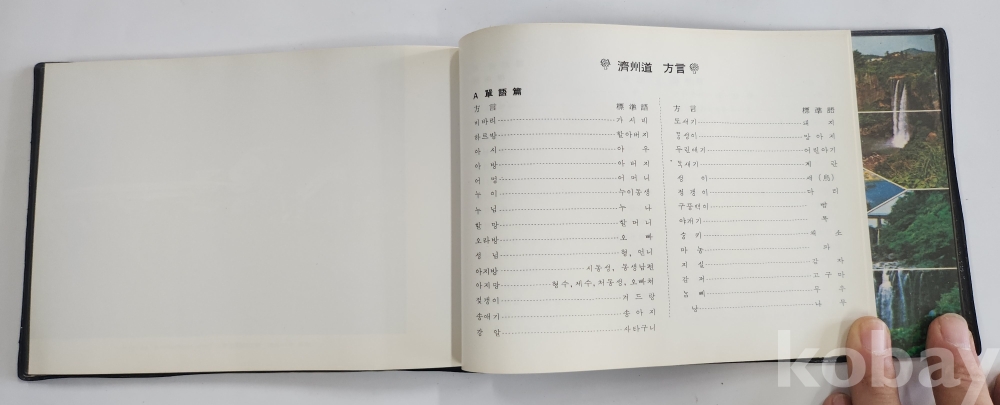 濟州道 方言
A 單語篇
方言 標準語
비바리 가시내
하르방 할아버지
아시 아우
아방 아버지
어멍 어머니
누이 누이동생
누님 누나
할망 할머니
오라방 오빠
성님 형, 언니
아지방 시동생, 동생남편
아지망 형수, 제수, 처동생, 오빠처
겨드랑
송애기 송아지
사타구니
方言 標準語
도새기 돼지
몽생이 망아지
어린아기
독새기 계란
생이 새 (鳥)
다리
구둠턱이 뺨
야개기 목
송키 채소
마농 파
지실 감자
감저 고구마
놈삐 무우
낭 나무
kobay